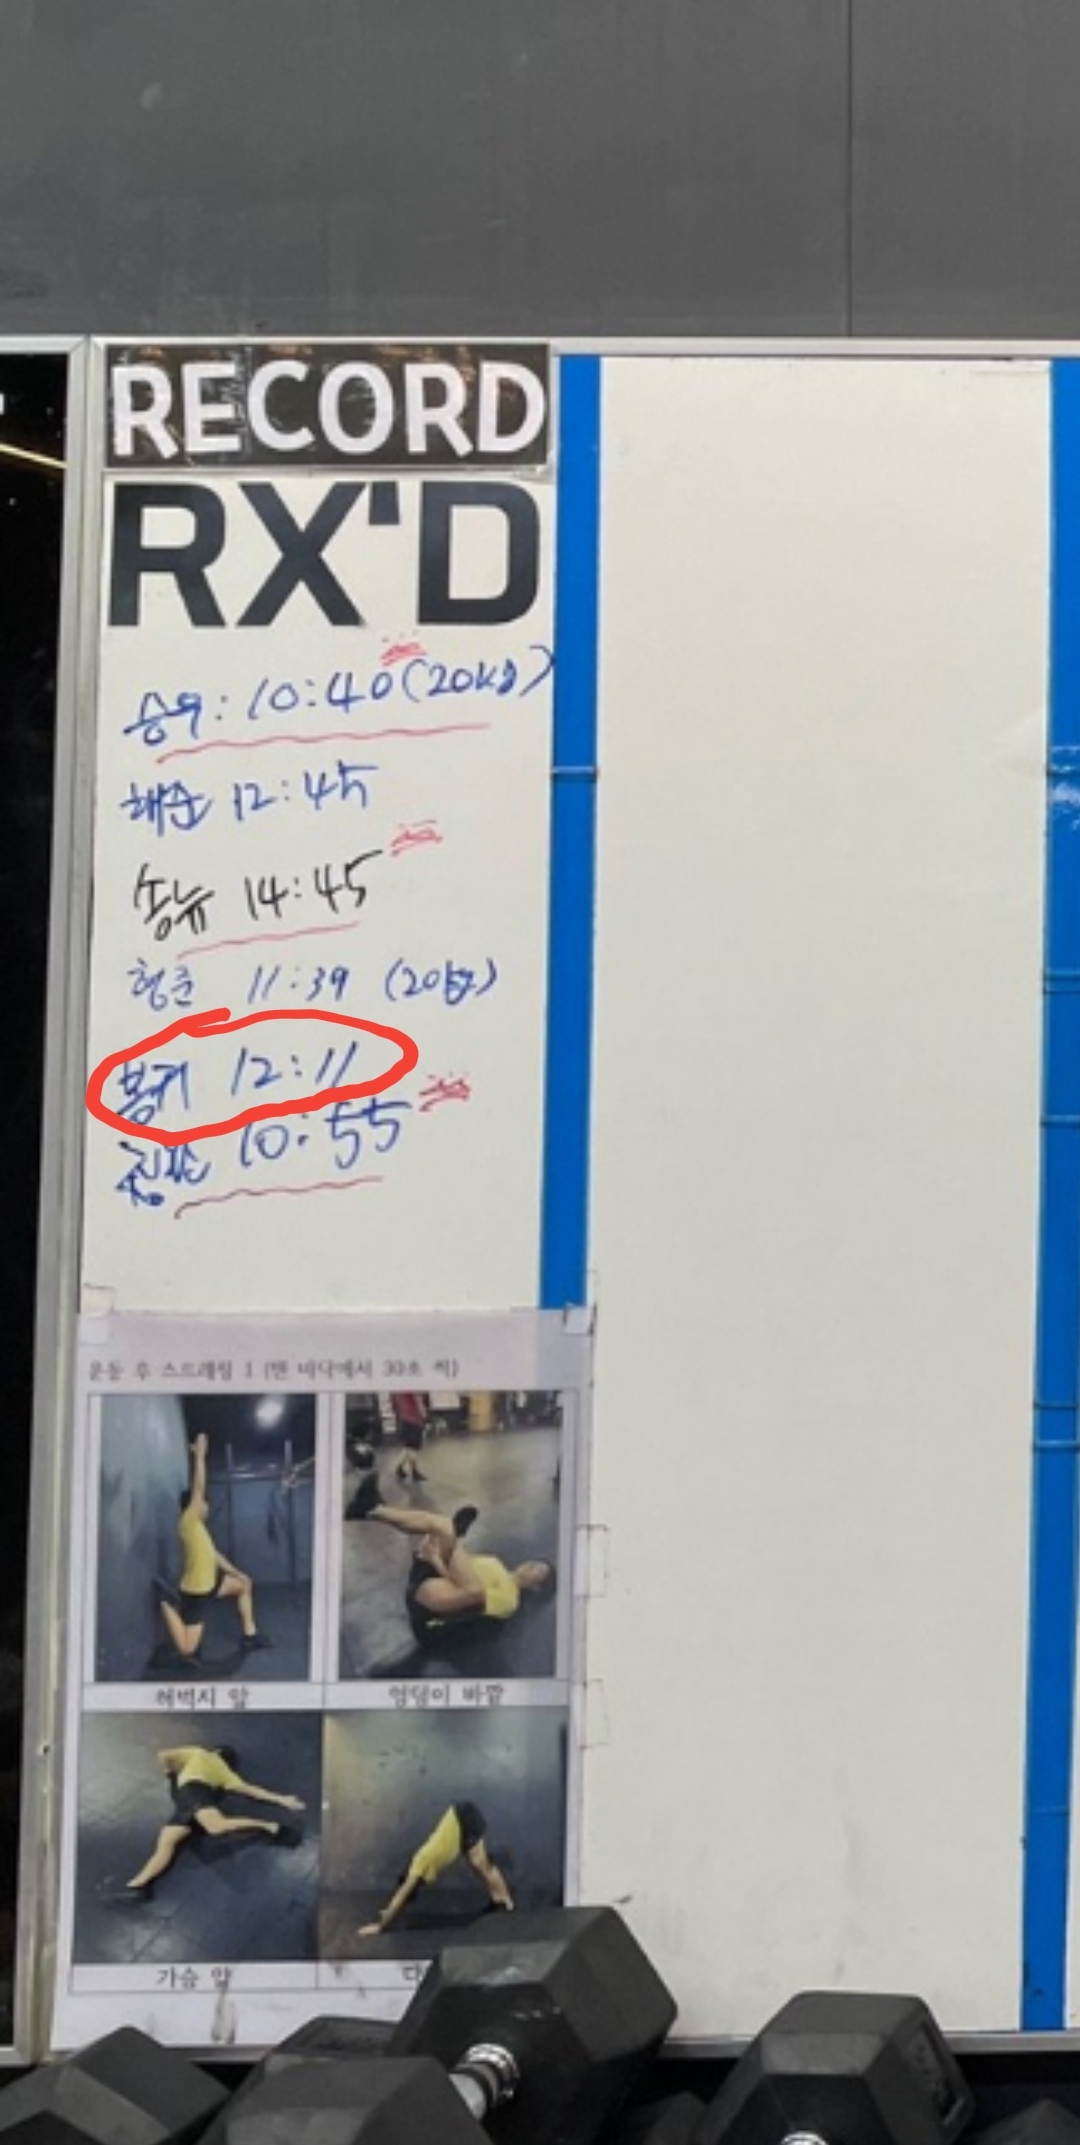 RECORD
RX'D
승우: 10:40 (20kg)
해순 12:45
송뉴 14:45
형준 11:39 (20kg)
봉귀 12:11
10:55
운동 후 스트레칭 1 (맨 바닥에서 30초 씩)
허벅지 앞
엉덩이 바깥
가슴 앞